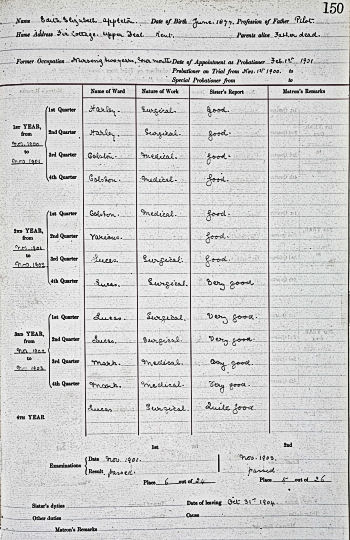 150
Name Edith Elizabeth Appleton. Date of Birth June. 1877. Profession of Father Pilot.
Home Address Fir Cottage. Upper Deal Kent. Parents alive Father dead.
Former Occupation Nursing two years, four months Date of Appointment as Probationer Feb. 1st 1901
Probationer on Trial from Nov. 1st 1900. to
Special Probationer from to
Name of Ward Nature of Work Sister's Report Matron's Remarks
1st Quarter Harley. Surgical. Good.
1st YEAR, 2nd Quarter Harley. Surgical. Good.
from Nov. 1900. 3rd Quarter Colston. Medical. Good.
to Nov. 1901. 4th Quarter Colston. Medical. Good.
1st Quarter Colston. Medical. Good.
2nd YEAR, 2nd Quarter Various. Good.
from Nov. 1901 3rd Quarter Lucas. Surgical. Good.
to Nov. 1902 4th Quarter Lucas. Surgical. Very good
1st Quarter Lucas. Surgical. Very good.
3rd YEAR, 2nd Quarter Lucas. Surgical. Very good.
from Nov. 1902 3rd Quarter Mark. Medical. Very good.
to Nov. 1903. 4th Quarter Mark. Medical. Very good.
4th YEAR Lucas Surgical. Quite good
1st 2nd
Examinations Date Nov. 1901. Nov. 1903.
Result passed. passed
Place 6 out of 24 Place 5 out of 26
Sister's duties Date of leaving Oct 31st 1904.
Other duties Cause
Matron's Remarks